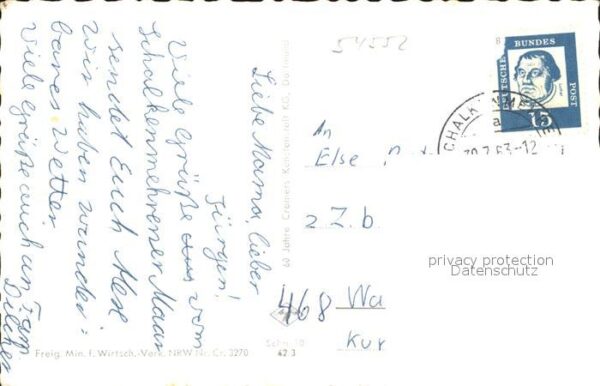 Liebe Mama, lieber
Jürgen!
Viele Grüße aus vom
Schalkenmehrener Maar
sendet Euch
Wir haben wunder=
bares Wetter
Viele Grüße auch an Fam.
54552
An
Else
z Z. b.
468 Wa
Kur
DEUTSCHE BUNDES POST
15
CHALK
60 Jahre Cramers Kunstanstalt KG. Dortmund
Freig. Min. f. Wirtsch.-Verk. NRW Nr. Cr. 3270
42 3
privacy protection
Datenschutz